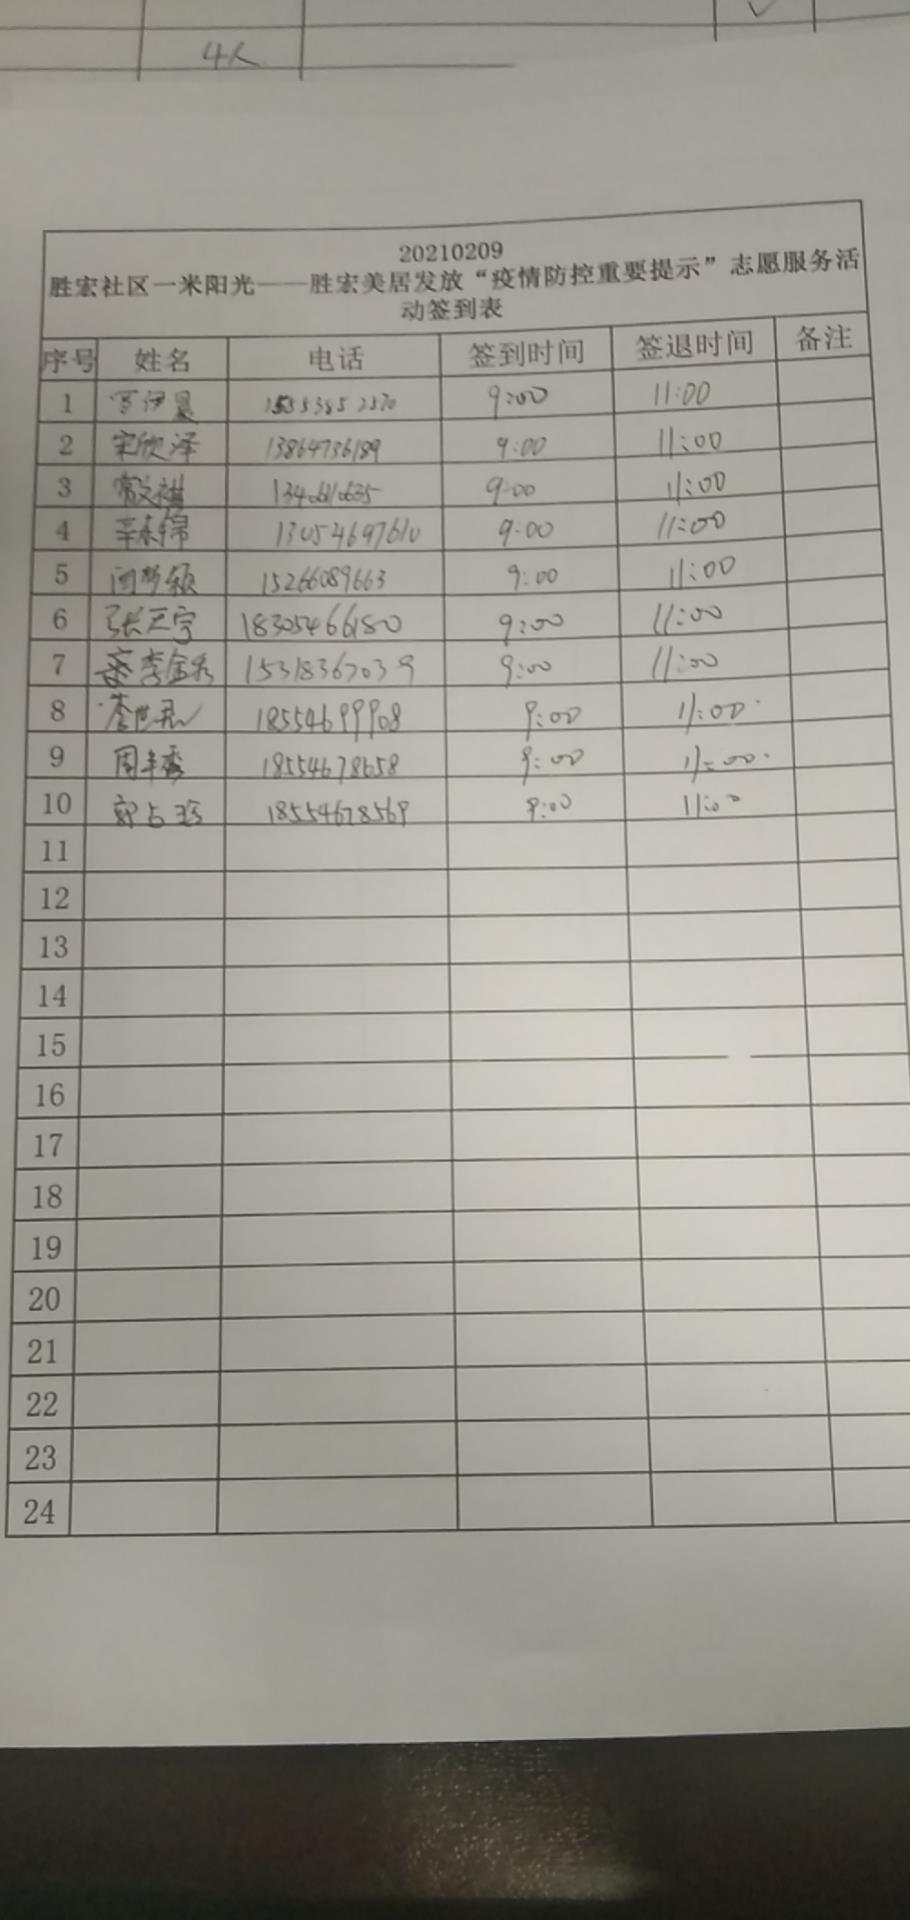 4人
20210209
胜宏社区一米阳光——胜宏美居发放“疫情防控重要提示”志愿服务活
动签到表
序号 姓名 电话 签到时间 签退时间 备注
1 15553852570 9:00 11:00
2 宋欣泽 13864736189 9:00 11:00
3 9:00 11:00
4 13054697610 9:00 11:00
5 15266089663 9:00 11:00
6 张正宇 18305466180 9:00 11:00
7 李金秀 15318367039 9:00 11:00
8 李世君 18554699908 9:00 11:00
9 周丰秀 18554678658 9:00 11:00
10 郭占珍 18554678569 9:00 11:00
11
12
13
14
15
16
17
18
19
20
21
22
23
24